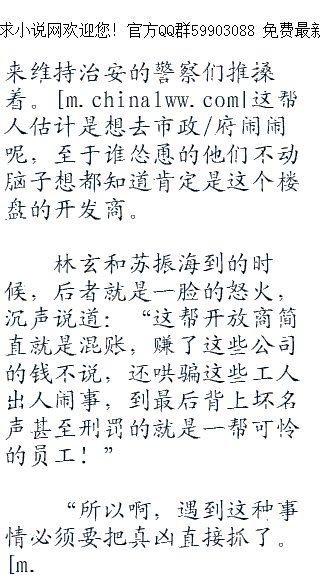 求小说网欢迎您! 官方QQ群59903088 免费最新
来维持治安的警察们推搡
着。[m.chinalww.com|这帮
人估计是想去市政/府闹闹
呢，至于谁怂恿的他们不动
脑子想都知道肯定是这个楼
盘的开发商。
林玄和苏振海到的时
候，后者就是一脸的怒火，
沉声说道：“这帮开放商简
直就是混账，赚了这些公司
的钱不说，还哄骗这些工人
出人闹事，到最后背上坏名
声甚至刑罚的就是一帮可怜
的员工！”
“所以啊，遇到这种事
情必须要把真凶直接抓了。
[m.